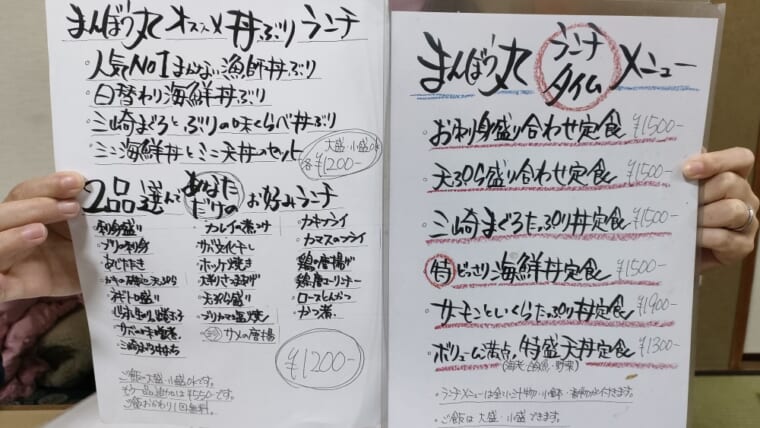 まんぼう丸 オススメ 丼ぶり ランチ
・人気No1まかない漁師丼ぶり
・日替わり海鮮丼ぶり
・三崎まぐろとぶりの味くらべ丼ぶり
・ミニ海鮮丼とミニ天丼のセット
大盛・小盛OK
各¥1200-
2品選んで あなただけの お好みランチ
・刺身盛り
・ブリの刺身
・あじたたき
・ネギトロ盛り
・サバの味噌煮
・三崎まぐろ
・カレイの煮つけ
・サバ文化干し
・ホッケ焼き
・天ぷら盛り
・ブリカマ塩焼
・サメの唐揚
・カキフライ
・カマスのフライ
・鶏の唐揚げ
・ロースとんかつ
・かつ煮
¥1200-
ご飯は大盛・小盛OKです。
もう一品追加は¥550-です。
ご飯おかわり1回無料。
まんぼう丸 ランチタイム メニュー
・お刺身盛り合わせ定食 ¥1500-
・天ぷら盛り合わせ定食 ¥1500-
・三崎まぐろたっぷり丼定食 ¥1500-
・特 どっさり海鮮丼定食 ¥1500-
・サーモンといくらたっぷり丼定食 ¥1900-
・ボリューム満点、特盛天丼定食 ¥1300-
(海老・白魚・野菜)
・ランチメニューは全ホ汁物・小鉢・香物が付きます。
・ご飯は大盛・小盛できます。